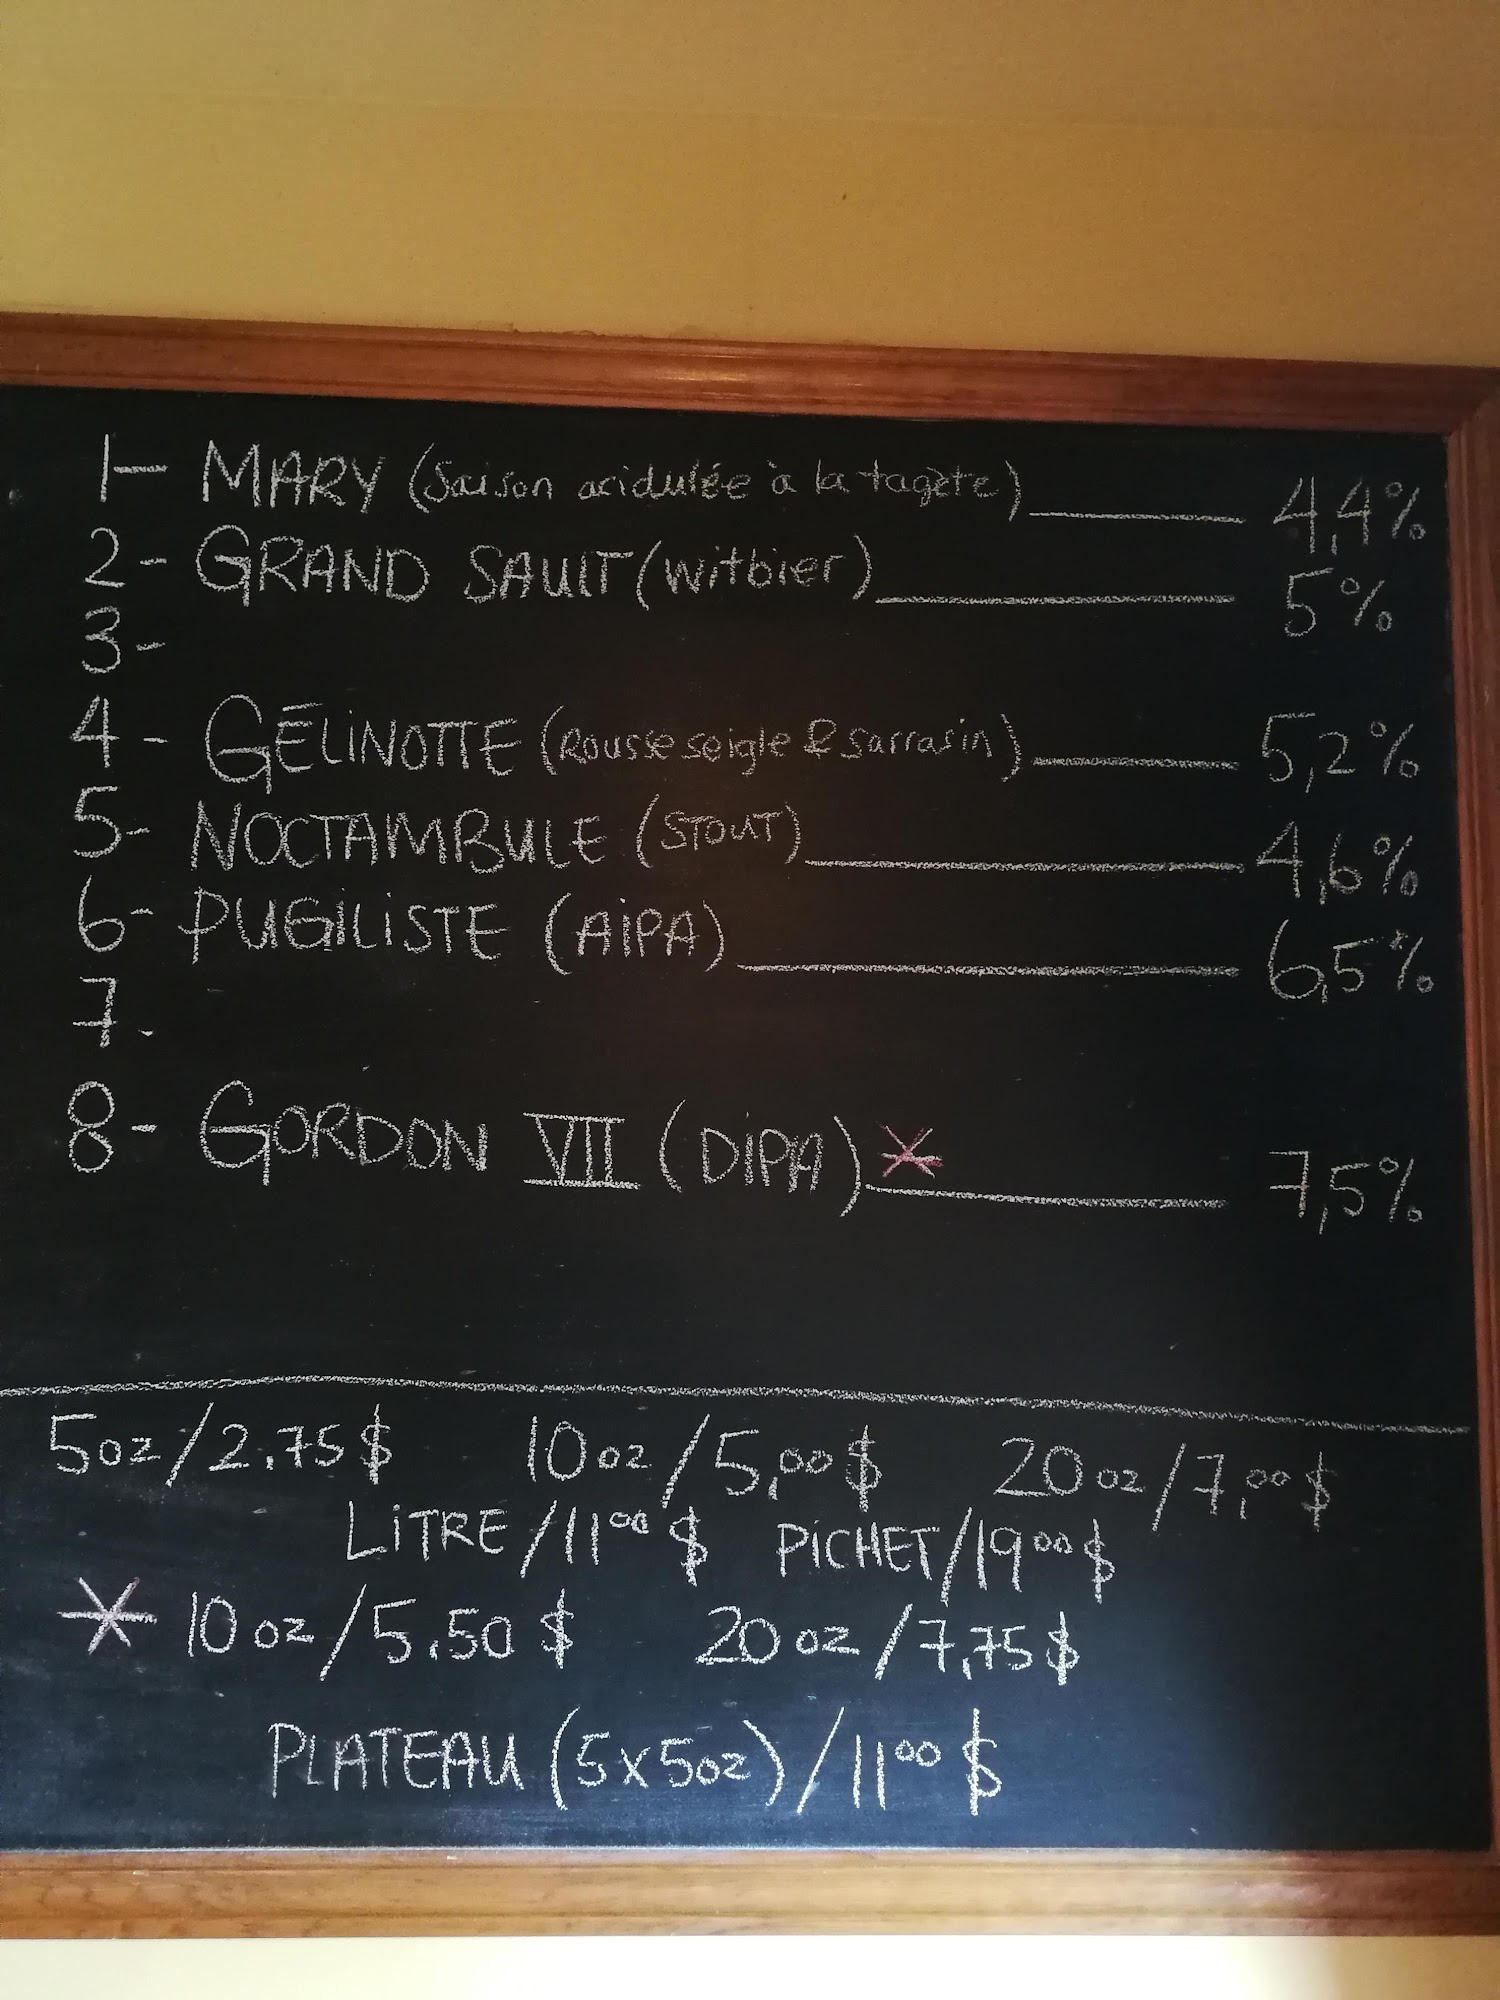 1- MARY (Saison acidulée à la tagète) 4,4%
2- GRAND SAULT (witbier) 5%
3-
4- GÉLINOTTE (Rousse seigle & sarrasin) 5,2%
5- NOCTAMBULE (STOUT) 4,6%
6- PUGILISTE (AIPA) 6,5%
7-
8- GORDON VII (DIPA)* 7,5%
5oz/2.75$ 10oz/5,00$ 20oz/7,00$
LITRE/11 00$ PICHET/19 00$
* 10oz/5.50$ 20oz/7,75$
PLATEAU (5x5oz)/11 00$